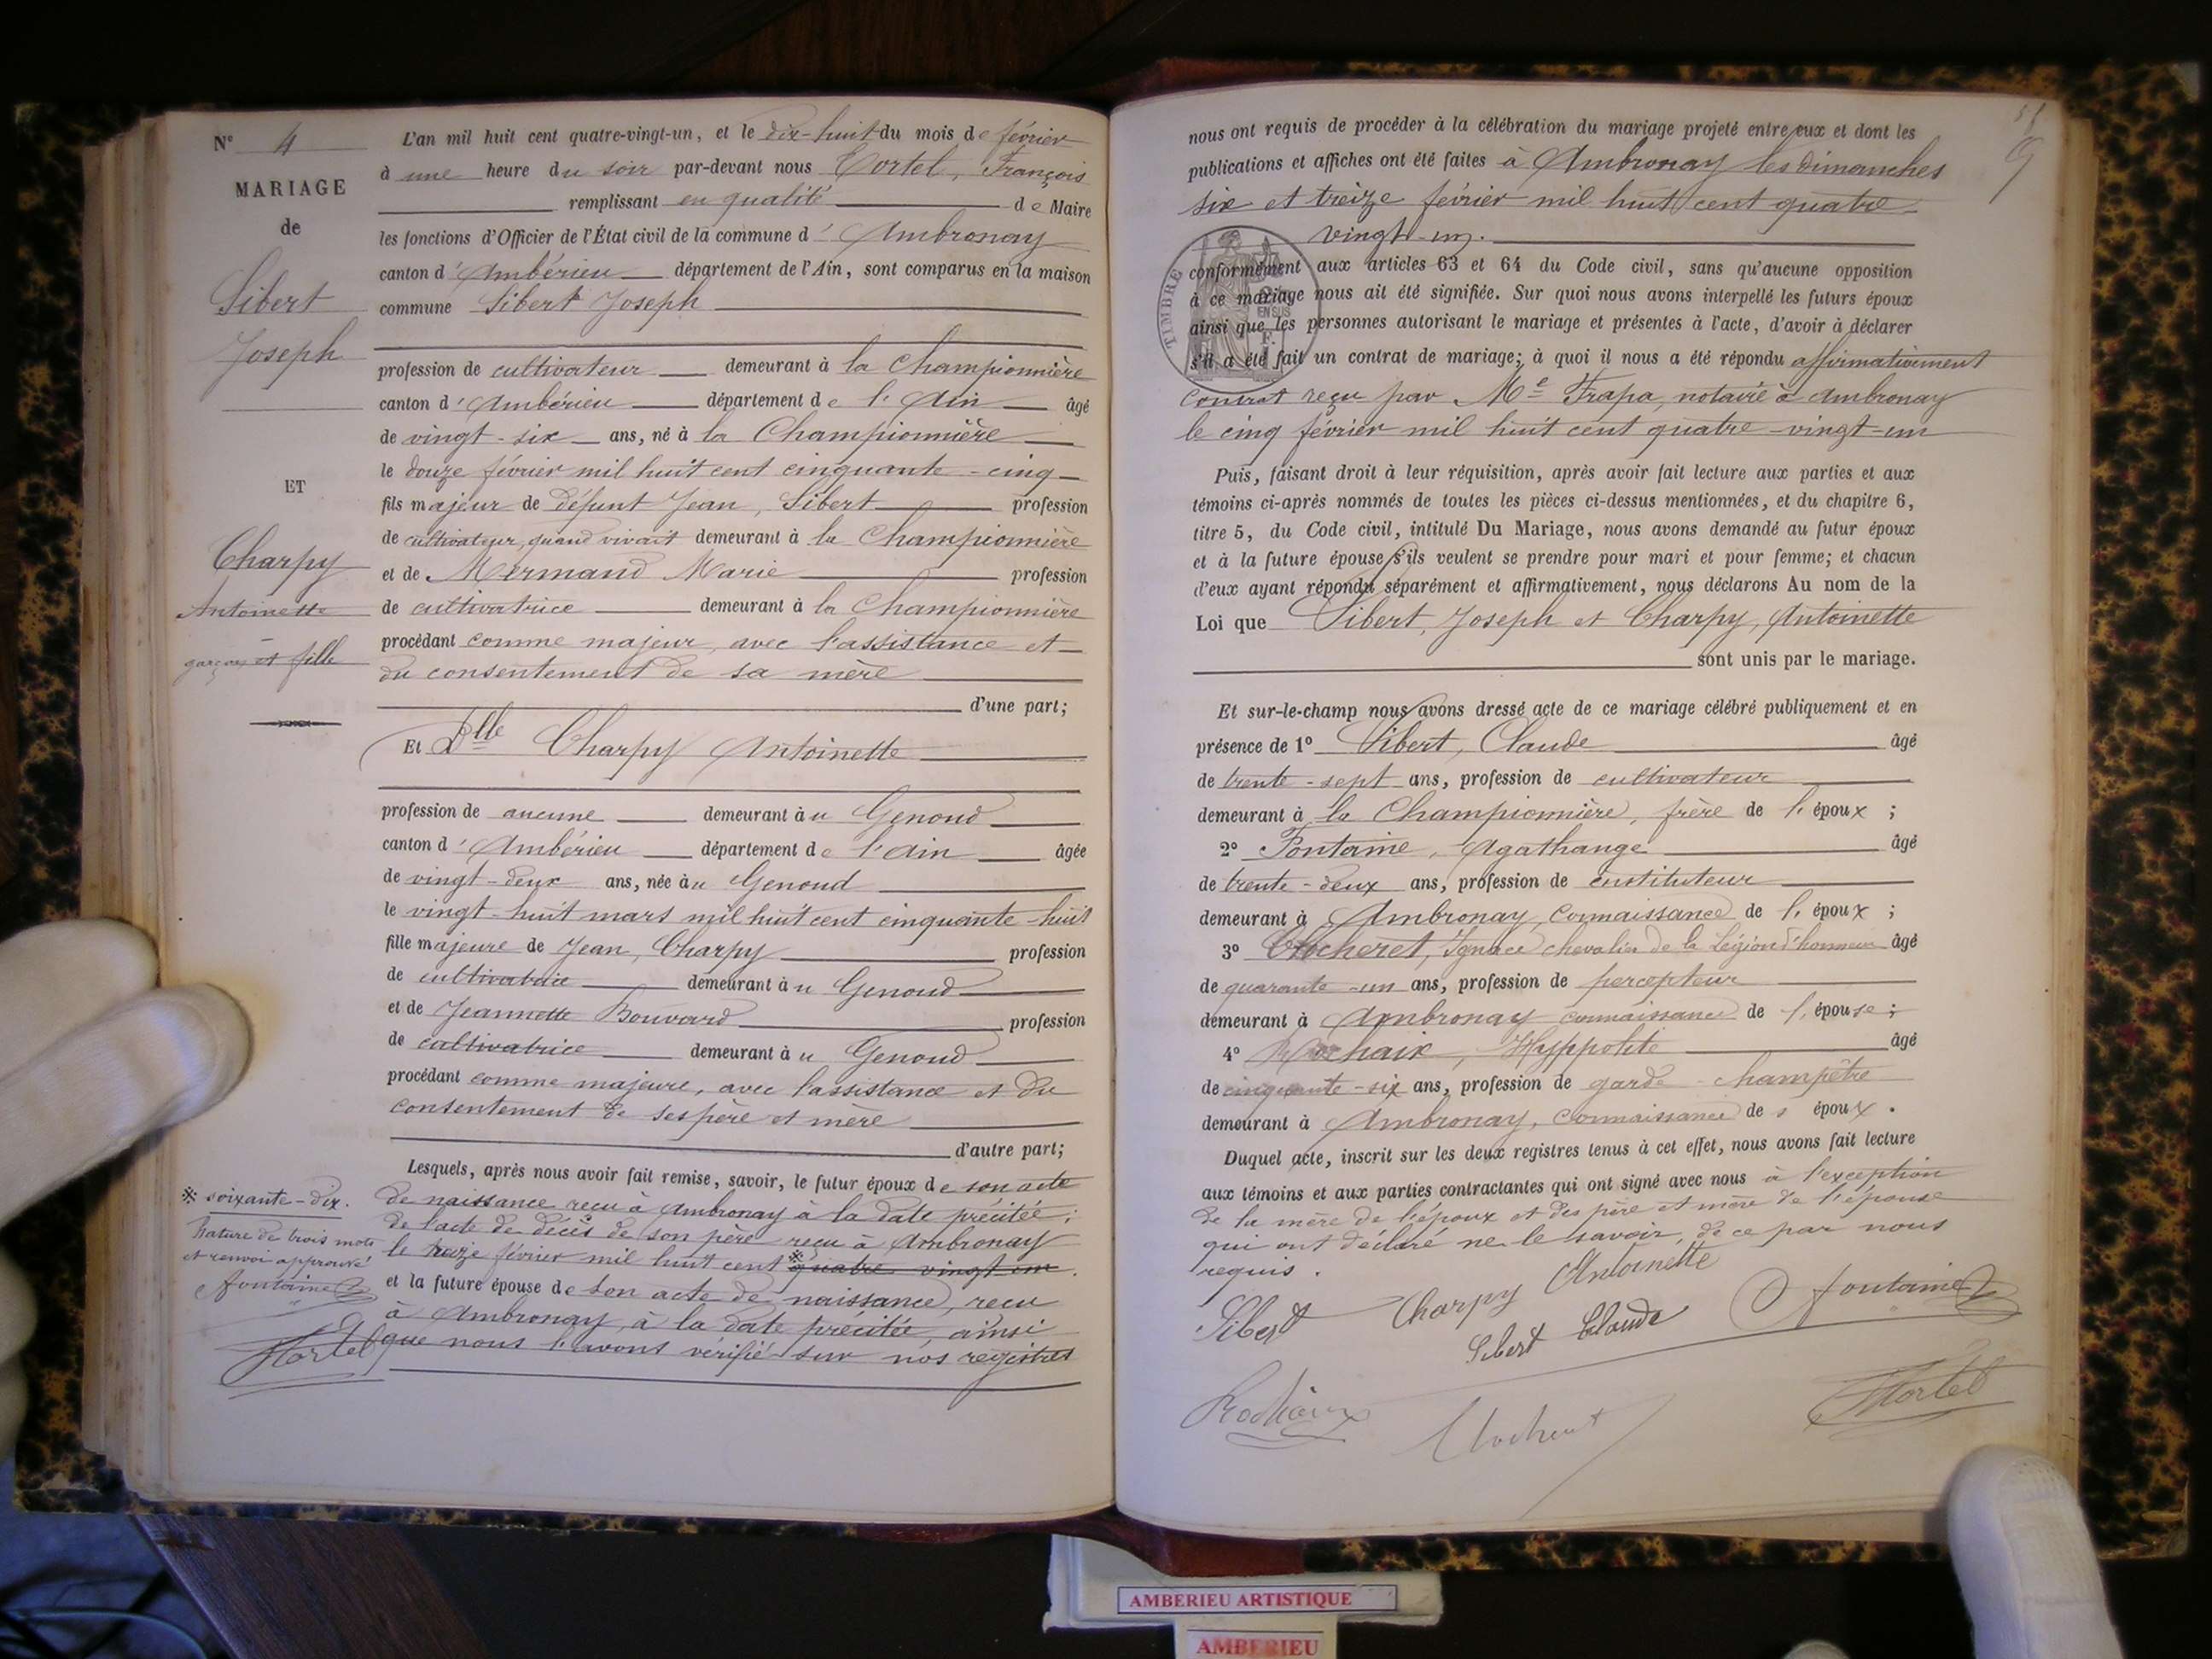 N° 4
MARIAGE
de
Sibert
Joseph
ET
Charpy
Antoinette
garçon et fille
L'an mil huit cent quatre-vingt-un, et le dix-huit du mois de février
à une heure du soir par-devant nous Tortel, François
remplissant en qualité de Maire
les fonctions d'Officier de l'État civil de la commune d'Ambronay
canton d'Ambérieu département de l'Ain, sont comparus en la maison
commune Sibert Joseph
profession de cultivateur demeurant à la Championnière
canton d'Ambérieu département de l'Ain âgé
de vingt-six ans, né à la Championnière
le douze février mil huit cent cinquante-cinq
fils majeur de défunt Jean, Sibert profession
de cultivateur, quand vivait demeurant à la Championnière
et de Mermand Marie profession
de cultivatrice demeurant à la Championnière
procédant comme majeur, avec l'assistance et
du consentement de sa mère
d'une part;
Et Dlle Charpy Antoinette
profession de aucune demeurant àu Genoud
canton d'Ambérieu département de l'Ain âgée
de vingt-deux ans, née àu Genoud
le vingt-huit mars mil huit cent cinquante-huit
fille majeure de Jean, Charpy profession
de cultivatrice demeurant àu Genoud
et de Jeannette Bouvard profession
de cultivatrice demeurant àu Genoud
procédant comme majeure, avec l'assistance et du
consentement de ses père et mère
d'autre part;
Lesquels, après nous avoir fait remise, savoir, le futur époux de son acte
de naissance reçu à Ambronay à la date précitée;
de l'acte de décès de son père reçu à Ambronay
le treize février mil huit cent ※ quatre vingt un.
et la future épouse de son acte de naissance, reçu
à Ambronay, à la date précitée, ainsi
que nous l'avons vérifié sur nos registres
※ soixante-dix.
Rature de trois mots
et renvoi approuvé
Afontaine
FTortel
nous ont requis de procéder à la célébration du mariage projeté entre eux et dont les
publications et affiches ont été faites à Ambronay les dimanches
six et treize février mil huit cent quatre-
vingt-un.
TIMBRE
EN SUS
conformément aux articles 63 et 64 du Code civil, sans qu'aucune opposition
à ce mariage nous ait été signifiée. Sur quoi nous avons interpellé les futurs époux
ainsi que les personnes autorisant le mariage et présentes à l'acte, d'avoir à déclarer
s'il a été fait un contrat de mariage; à quoi il nous a été répondu affirmativement
contrat reçu par Me Frapa, notaire à Ambronay
le cinq février mil huit cent quatre-vingt-un
Puis, faisant droit à leur réquisition, après avoir fait lecture aux parties et aux
témoins ci-après nommés de toutes les pièces ci-dessus mentionnées, et du chapitre 6,
titre 5, du Code civil, intitulé Du Mariage, nous avons demandé au futur époux
et à la future épouse s'ils veulent se prendre pour mari et pour femme; et chacun
d'eux ayant répondu séparément et affirmativement, nous déclarons Au nom de la
Loi que Sibert, Joseph et Charpy, Antoinette
sont unis par le mariage.
Et sur-le-champ nous avons dressé acte de ce mariage célébré publiquement et en
présence de 1° Sibert, Claude âgé
de trente-sept ans, profession de cultivateur
demeurant à la Championnière, frère de l'époux;
2° Fontaine, Agathange âgé
de trente-deux ans, profession de instituteur
demeurant à Ambronay, connaissance de l'époux;
3° Clocheret, Ignace chevalier de la Légion d'honneur âgé
de quarante-un ans, profession de percepteur
demeurant à Ambronay connaissance de l'épouse;
4° Rochaix, Hyppolite âgé
de cinquante-six ans, profession de garde-champêtre
demeurant à Ambronay, connaissance de s époux.
Duquel acte, inscrit sur les deux registres tenus à cet effet, nous avons fait lecture
aux témoins et aux parties contractantes qui ont signé avec nous à l'exception
de la mère de l'époux et des père et mère de l'épouse
qui ont déclaré ne le savoir, de ce par nous
requis.
Sibert Charpy Antoinette
Sibert Claude Afontaine
Rochaix Clocheret FTortel
AMBERIEU ARTISTIQUE
AMBERIEU